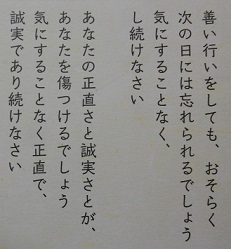 善い行いをしても、おそらく
次の日には忘れられるでしょう
気にすることなく、
し続けなさい
あなたの正直さと誠実さとが、
あなたを傷つけるでしょう
気にすることなく正直で、
誠実であり続けなさい